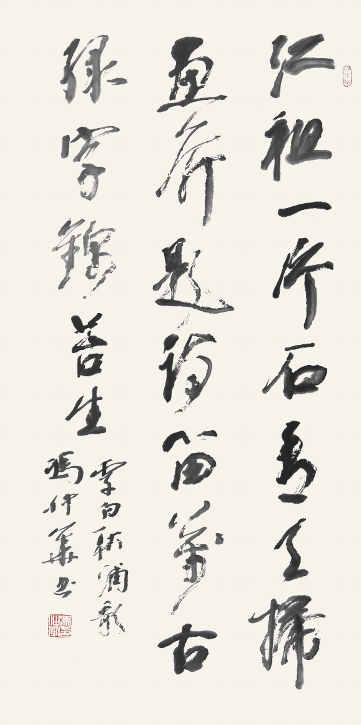 江祖一片石青天掃
画屏題詩留萬古
綠字錦苔生
李白秋浦歌
馮仲華书